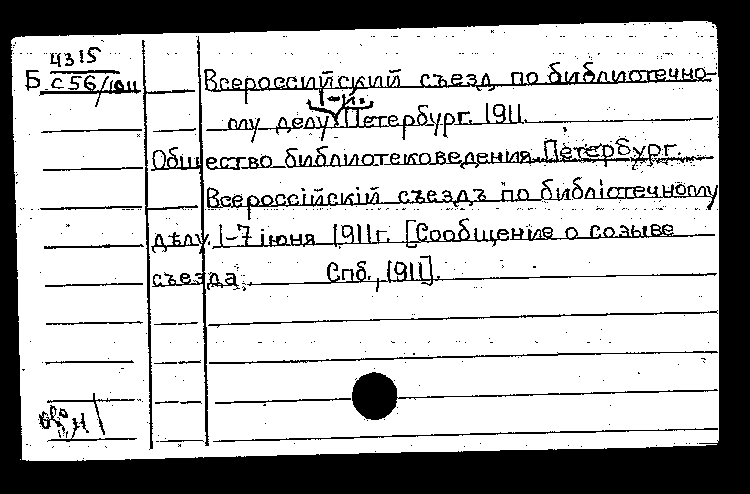 4315
Б С56/1911
Всероссийский съезд по библиотечно-
му делу. 1-й. Петербург. 1911.
Общество библиотековедения. Петербург.
Всероссiйскiй съездъ по библiотечному
дѣлу. 1-7 iюня 1911г. [Сообщение о созыве
съезда. Спб., 1911].